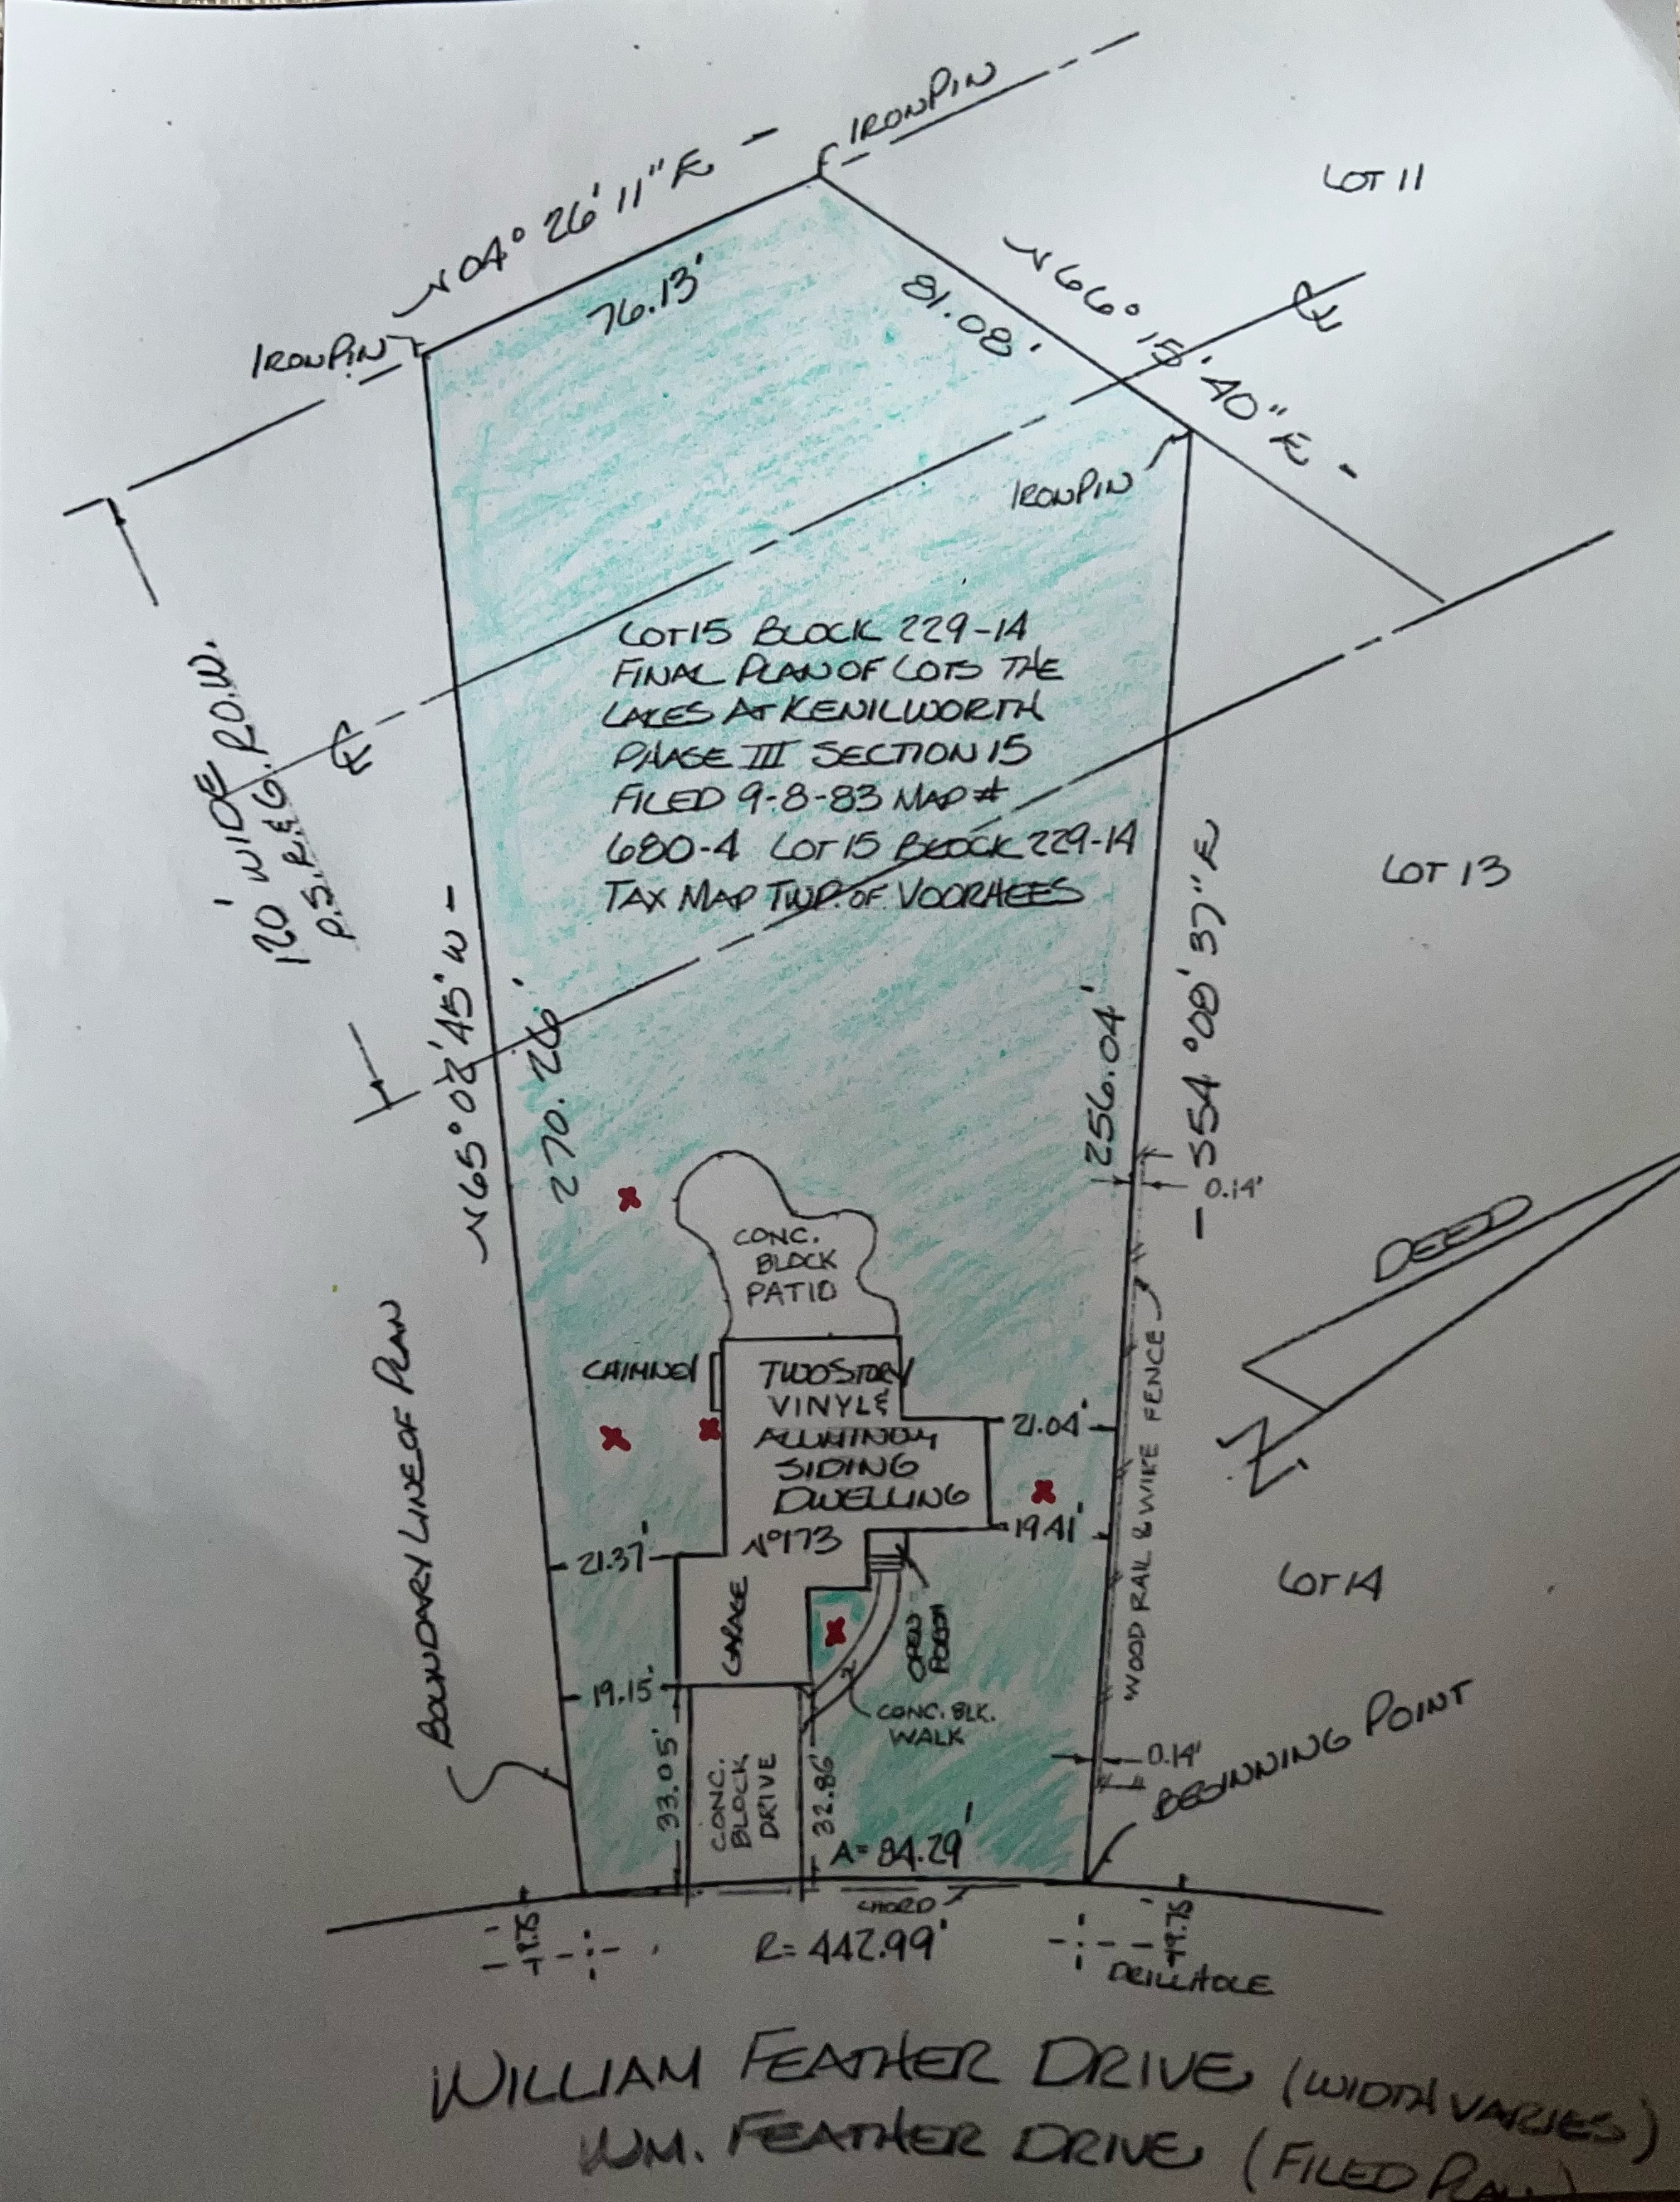 IRON PIN
LOT 11
N 04° 26' 11" E -
76.13'
IRON PIN
N 66° 15' 40" E -
81.08'
IRON PIN
LOT 15 BLOCK 229-14
FINAL PLAN OF LOTS THE
LAKES AT KENILWORTH
PHASE III SECTION 15
FILED 9-8-83 MAP #
680-4 LOT 15 BLOCK 229-14
TAX MAP TWP. OF VOORHEES
120' WIDE
P.S.E.&G. R.O.W.
LOT 13
N 65° 02' 45" W -
270.26'
256.04'
- S54° 08' 37" E
0.14'
DEED
N
CONC.
BLOCK
PATIO
BOUNDARY LINE OF PLAN
CHIMNEY
TWO STORY
VINYL &
ALUMINUM
SIDING
DWELLING
No 173
21.04'
19.41'
WOOD RAIL & WIRE FENCE
21.37'
LOT 14
GARAGE
OPEN
PORCH
19.15'
CONC. BLK.
WALK
33.05'
CONC.
BLOCK
DRIVE
32.86'
0.14'
BEGINNING POINT
A= 84.29'
CHORD
R= 442.99'
19.75
19.75
DRILL HOLE
WILLIAM FEATHER DRIVE (WIDTH VARIES)
WM. FEATHER DRIVE (FILED PLAN)